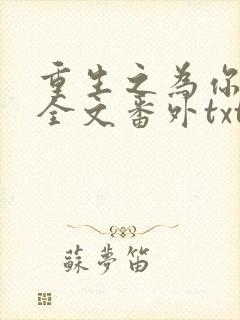 重生之為你
全文番外txt
蘇夢笛